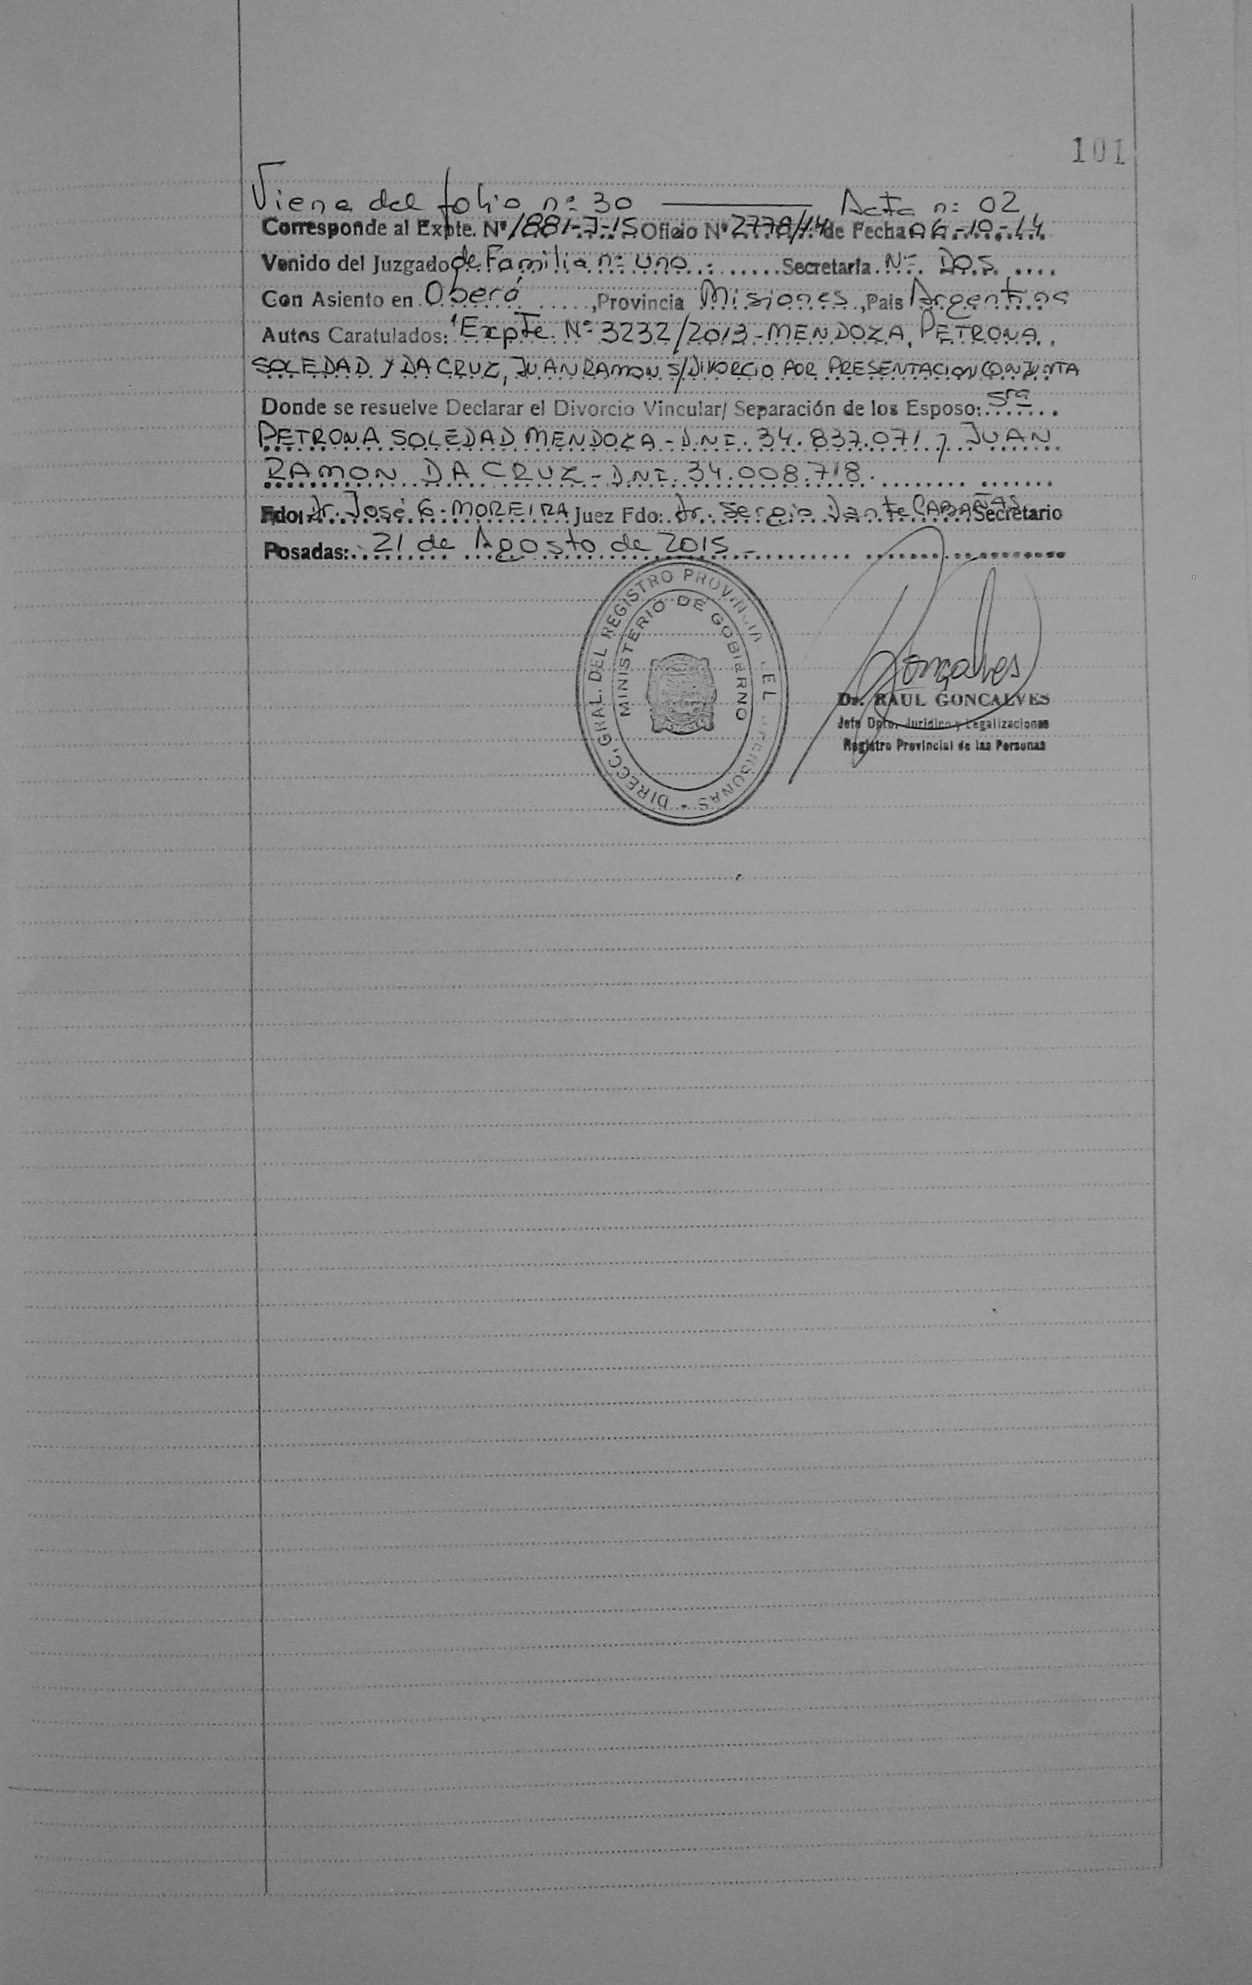 101
Viene del folio nº 30 ——— Acta nº 02
Corresponde al Expte. Nº 1881-7-15 Oficio Nº 2778/14 de Fecha 06-10-14
Venido del Juzgado de Familia nº uno. Secretaría Nº DOS
Con Asiento en Oberá, Provincia Misiones, País Argentina
Autos Caratulados: "Expte. Nº 3232/2013-MENDOZA, PETRONA
SOLEDAD Y DA CRUZ, JUAN RAMON S/DIVORCIO POR PRESENTACION CONJUNTA
Donde se resuelve Declarar el Divorcio Vincular/ Separación de los Esposo: Sra
PETRONA SOLEDAD MENDOZA-D.N.I. 34.837.071 y JUAN
RAMON DA CRUZ-D.N.I. 34.008.718
Fdo: Dr. José G. MOREIRA Juez Fdo: Dr. Sergio Dante CABAÑAS Secretario
Posadas: 21 de Agosto de 2015
DIRECC. GRAL. DEL REGISTRO PROVINCIAL DE PERSONAS
MINISTERIO DE GOBIERNO
Gonçalves
Dr. RAUL GONCALVES
Jefe Dpto. Jurídico y Legalizaciones
Registro Provincial de las Personas